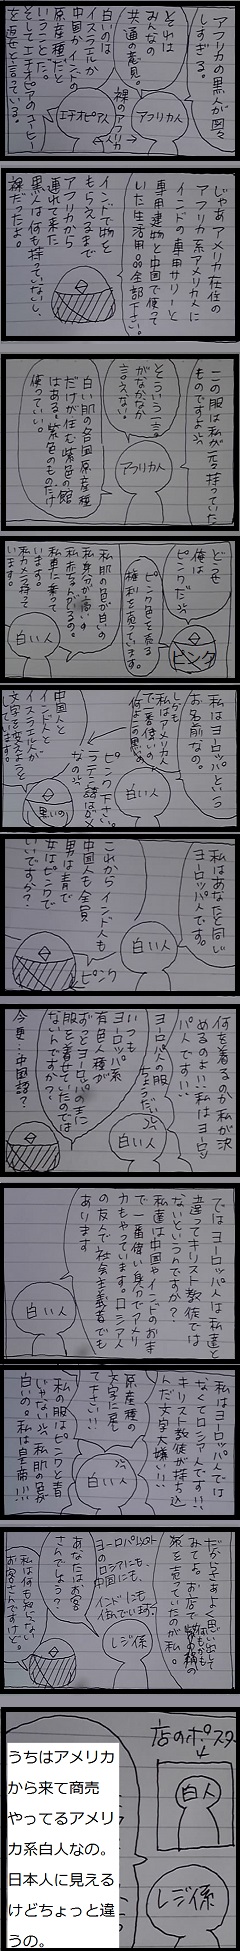 アフリカの黒人が図々
しすぎる。
それは
みんなの
共通の意見。
裸のアフリカ
人
アフリカ人
エチオピア人
白いのは
イスラエルか
中国かインドの
原産種だと
いうことだ。
そしてエチオピアのコーヒー
じゃあアメリカ在住の
アフリカ系アメリカ人に
インドの専用サリーと
専用建物と中国で使って
いた生活用品全部下さい。
インドで物を
もらえるまで
アフリカから
連れて来た
黒人は何も持っていないし、
裸だったよ。
この服は私が元々持っていた
ものですよ
そういう一言
がなかなか
言えない。
アフリカ人
白い肌の各国原産種
だけが住む紫色の館
はある。紫色のものだけ
使っていい。
どうせ
俺は
ピンクだ
ピンク
ピンク色を売る
権利を売っています。
私肌の色が白いの
私身分が高いの
私赤ちゃんがいるの。
私車に乗って
います。
私カメラ持って
います。
白い人
私はヨーロッパという
お名前なの。
しかも
私はアメリカ人
で一番偉いの
白い人
ピンク下さい。
中国人と
イスラエル人が
文字を変えようと
しています。
黒いの
私はあなたと同じ
ヨーロッパ人です。
白い人
これからインド人も
中国人も全員
男は青で
女はピンクで
いいですか？
ピンク
何を着るのか私が決
めるのよ!!私はヨーロッ
パ人です!!
ヨーロッパ人の服
ちょうだい
白い人
いつも
ヨーロッパ系
有色人種が
ずっとヨーロッパの主に
服を着せていたのでは
ないんですか？
今更…中国語？
ではヨーロッパ人は私達と
違ってキリスト教徒では
ないというんですか？
私達は中国やインドのお寺
で一番偉い身分でアメリ
カもやっています。ロシア人
の友人で社会主義者でも
あります
白い人
私はヨーロッパ人では
なくてロシア人です!!
キリスト教徒が持ち込
んだ文字大嫌い!!
原産種の
文字に戻し
て下さい!!
白い人
私の服はピンクと青
じゃない 私肌の色が
白いの。私は皇帝!!!
だからさぁよく思い出して
みてよ。お店で
服を売っていたのが私。
ヨーロッパリストの
ロシアにも、
中国にも、
インドにも
住んでいます
レジ係
あなたはお客
さんでしょう？
私は何も知らない
お客さんですけど。
店のポスター
白人
レジ係
うちはアメリカ
から来て商売
やってるアメリ
カ系白人なの。
日本人に見える
けどちょっと違
うの。